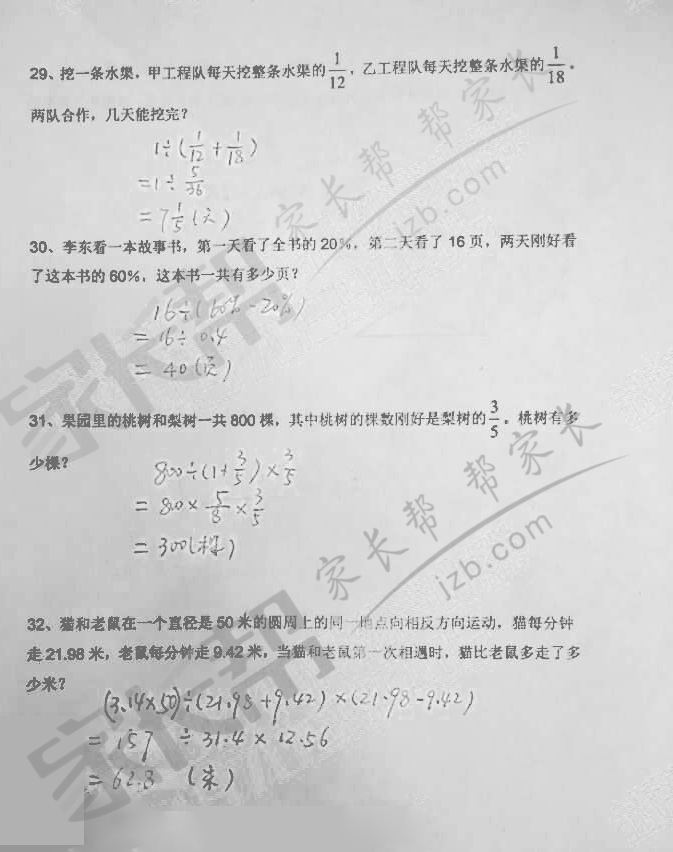 29、挖一条水渠，甲工程队每天挖整条水渠的1/12，乙工程队每天挖整条水渠的1/18。
两队合作，几天能挖完？
1÷(1/12+1/18)
=1÷5/36
=7 1/5(天)
30、李东看一本故事书，第一天看了全书的20%，第二天看了16页，两天刚好看
了这本书的60%，这本书一共有多少页？
16÷(60%-20%)
=16÷0.4
=40(页)
31、果园里的桃树和梨树一共800棵，其中桃树的棵数刚好是梨树的3/5。桃树有多
少棵？
800÷(1+3/5)×3/5
=800×5/8×3/5
=300(棵)
32、猫和老鼠在一个直径是50米的圆周上的同一地点向相反方向运动，猫每分钟
走21.98米，老鼠每分钟走9.42米，当猫和老鼠第一次相遇时，猫比老鼠多走了多
少米？
(3.14×50)÷(21.98+9.42)×(21.98-9.42)
=157÷31.4×12.56
=62.8(米)
家长帮
家长帮 帮家长
jzb.com
家长帮
家长帮 帮家长
jzb.com